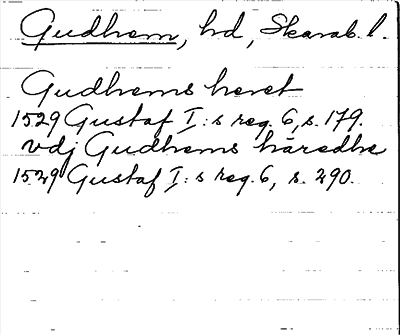 Gudhem, hd, Skarab. l.
Gudhems heret
1529 Gustaf I:s reg. 6, s. 179.
vdj Gudhems häredhe
1529 Gustaf I:s reg. 6, s. 290.